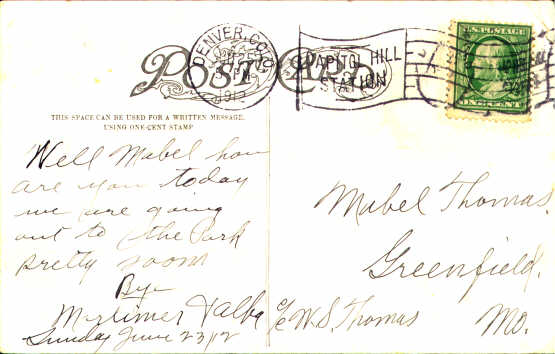 POST CARD
DENVER, COLO.
1912
CAPITOL HILL
STATION
U.S. POSTAGE
ONE CENT
THIS SPACE CAN BE USED FOR A WRITTEN MESSAGE,
USING ONE-CENT STAMP
Well Mabel how
are you today
we are going
out to the Park
pretty soon
Bye
Mortimer & Alba
Sunday June 23/12
Mabel Thomas
Greenfield.
c/o W.S. Thomas Mo.